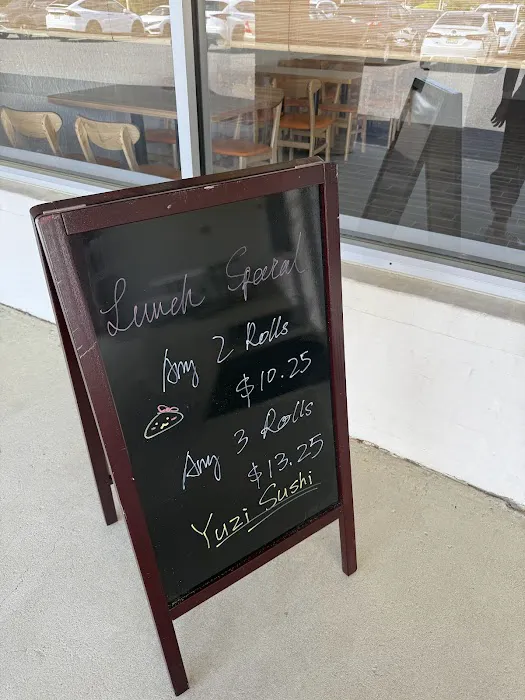 Lunch Special
Any 2 Rolls
$10.25
Any 3 Rolls
$13.25
Yuzi Sushi